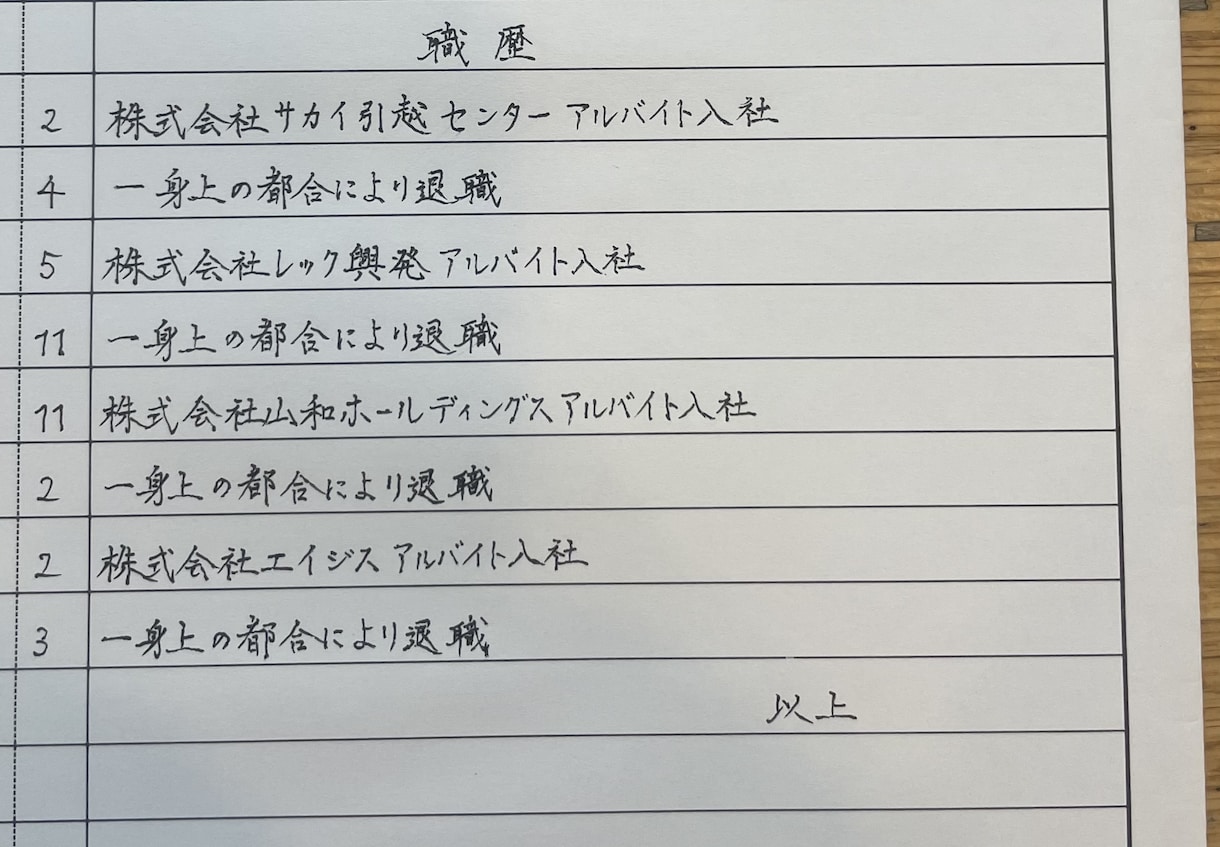 職歴
2 株式会社サカイ引越センター アルバイト入社
4 一身上の都合により退職
5 株式会社レック興発 アルバイト入社
11 一身上の都合により退職
11 株式会社山和ホールディングス アルバイト入社
2 一身上の都合により退職
2 株式会社エイジス アルバイト入社
3 一身上の都合により退職
以上